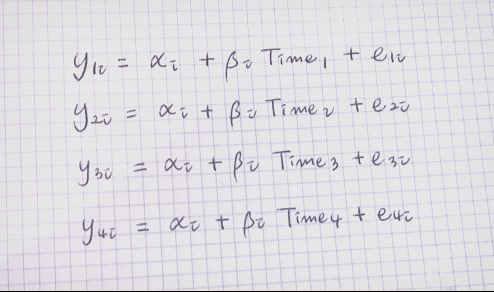 y₁ᵢ = αᵢ + βᵢ Time₁ + e₁ᵢ
y₂ᵢ = αᵢ + βᵢ Time₂ + e₂ᵢ
y₃ᵢ = αᵢ + βᵢ Time₃ + e₃ᵢ
y₄ᵢ = αᵢ + βᵢ Time₄ + e₄ᵢ